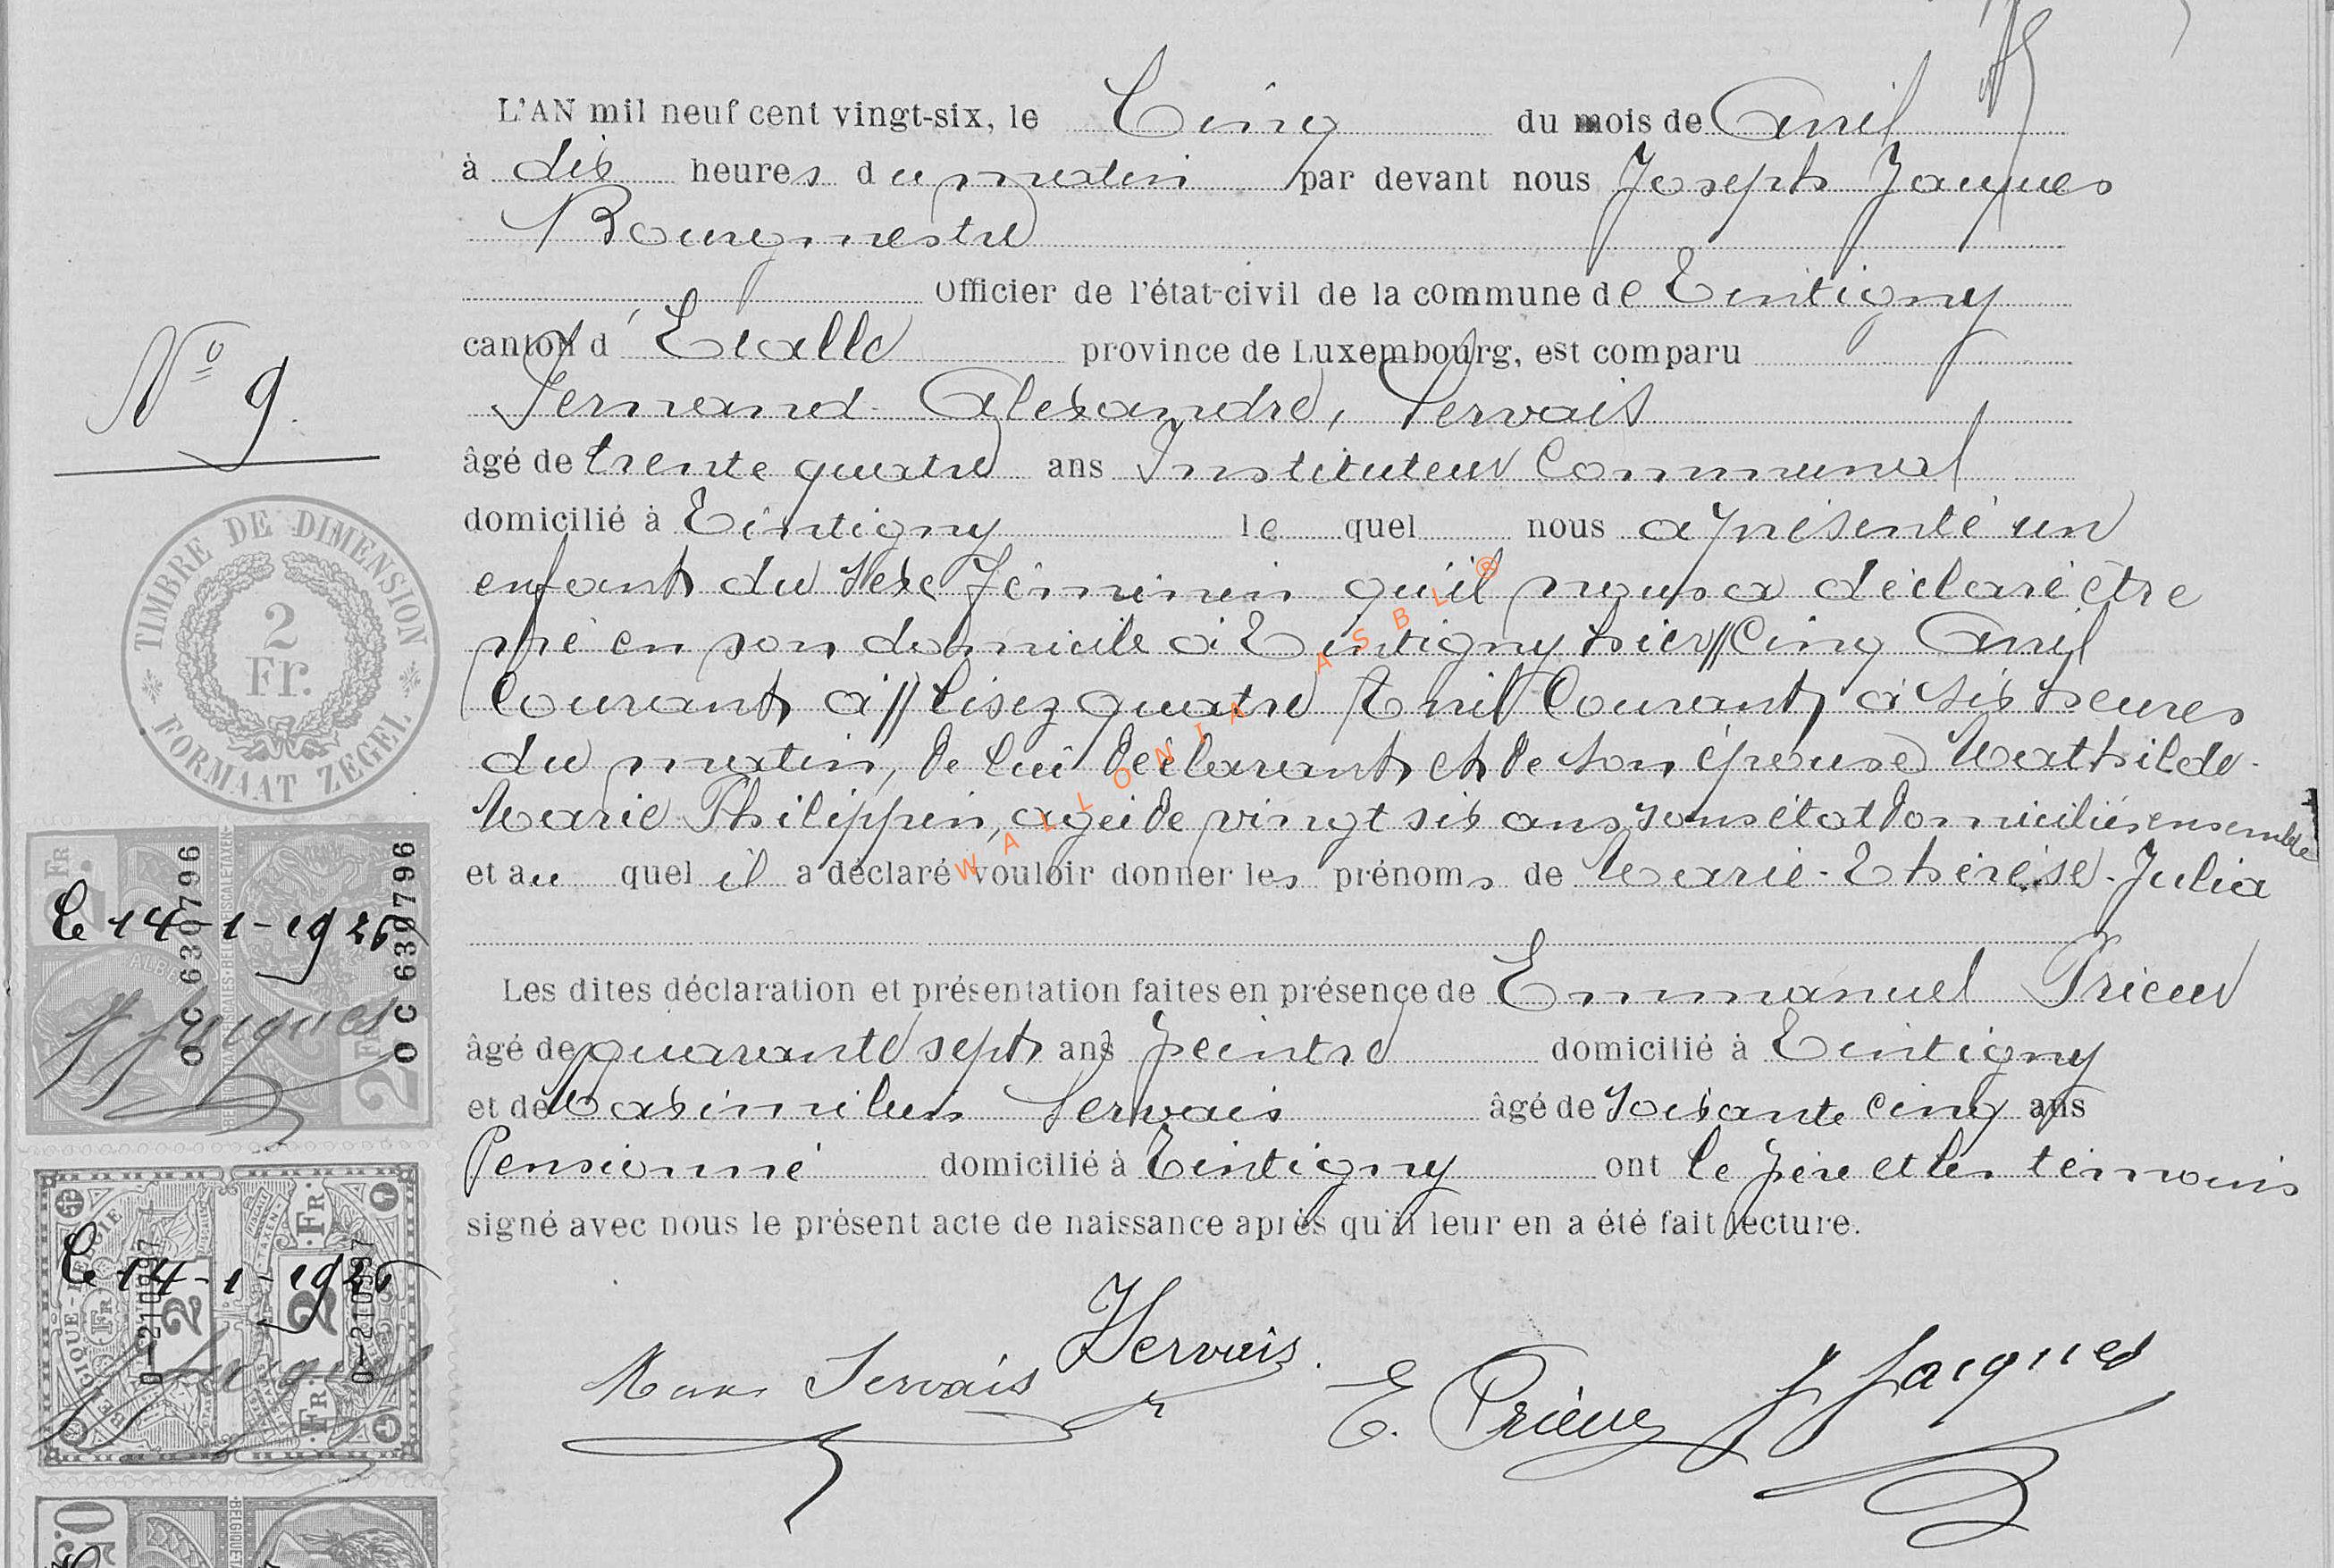 L'AN mil neuf cent vingt-six, le Cinq du mois de Avril
à dix heures du matin par devant nous Joseph Jacques
Bourgmestre
Officier de l'état-civil de la commune de Tintigny
canton d'Etalle province de Luxembourg, est comparu
Fernand Alexandre, Servais
âgé de trente quatre ans Instituteur Communal
domicilié à Tintigny le quel nous a présenté un
enfant du sexe féminin qu'il nous a déclaré être
né en son domicile à Tintigny hier // Cinq Avril
Courant à // lisez quatre Avril Courant, à six heures
du matin, de lui déclarant et de son épouse Mathilde
Marie Philippin, agée de vingt six ans, sans état domiciliés ensemble
et au quel il a déclaré vouloir donner les prénoms de Marie-Thérèse-Julia
Les dites déclaration et présentation faites en présence de Emmanuel Prieur
âgé de quarante sept ans peintre domicilié à Tintigny
et de Maximilien Servais âgé de soixante cinq ans
Pensionné domicilié à Tintigny ont le père et les témoins
signé avec nous le présent acte de naissance après qu'il leur en a été fait lecture.
FServais.
Max Servais
E. Prieur
J Jacques
N° 9.
TIMBRE DE DIMENSION
2
Fr.
FORMAAT ZEGEL
OC 6307796
OC 6307796
Le 14-1-1926
J Jacques
2 FR
BELGIQUE-BELGIE
2 FR
Le 14-1-1926
J Jacques
WALLONIA ASBL ®